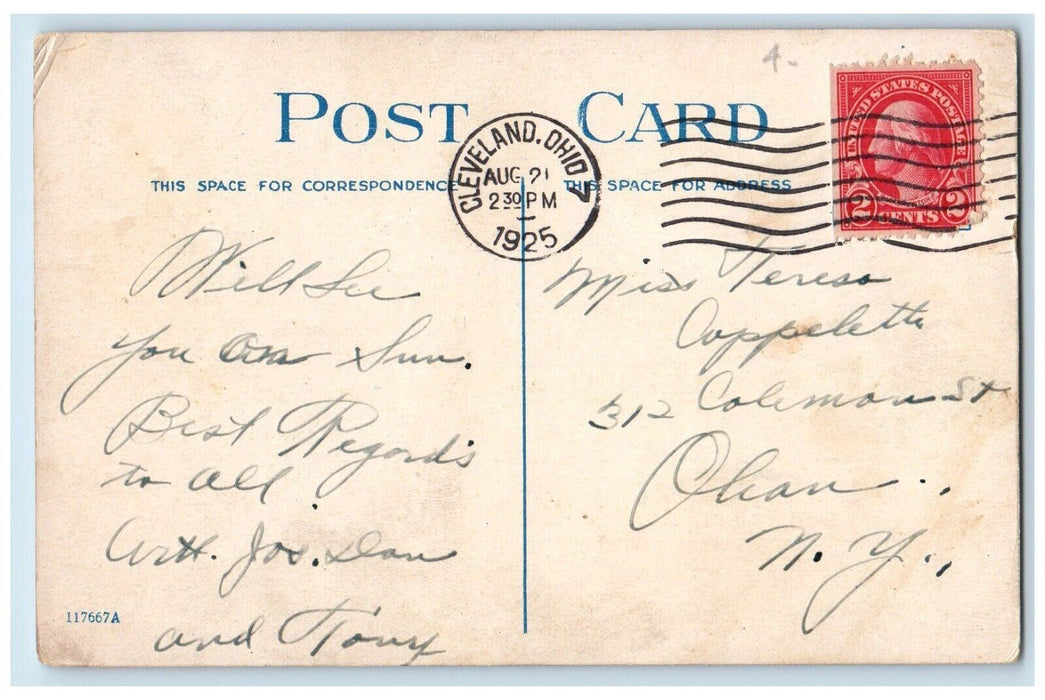 4-
POST CARD
THIS SPACE FOR CORRESPONDENCE
THIS SPACE FOR ADDRESS
CLEVELAND, OHIO 7
AUG 21
2 30 PM
1925
UNITED STATES POSTAGE
2 CENTS 2
Will See
you on Sun.
Best Regards
to all
Art. Jos. Dan
and Tony
117667A
Miss Teresa
Cappeletti
312 Coleman St
Olean.,
N.Y.,